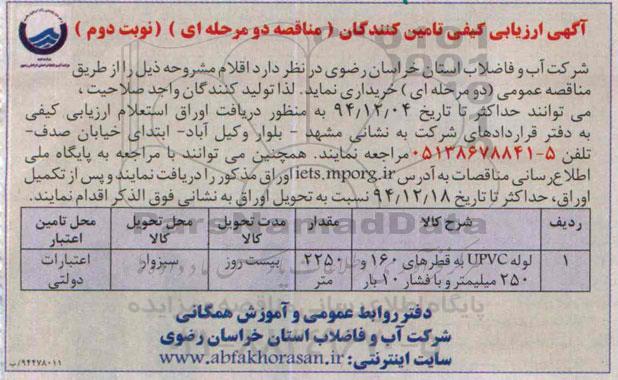 آگهی ارزیابی کیفی تامین کنندگان ( مناقصه دو مرحله ای ) ( نوبت دوم )
شرکت آب و فاضلاب استان خراسان رضوی در نظر دارد اقلام مشروحه ذیل را از طریق
مناقصه عمومی (دو مرحله ای) خریداری نماید. لذا تولید کنندگان واجد صلاحیت،
می توانند حداکثر تا تاریخ ۹۴٫۱۲٫۰۴ به منظور دریافت اوراق استعلام ارزیابی کیفی
به دفتر قراردادهای شرکت به نشانی مشهد - بلوار وکیل آباد- ابتدای خیابان صدف-
تلفن ۵-۰۵۱۳۸۶۷۸۸۴۱ مراجعه نمایند. همچنین می توانند با مراجعه به پایگاه ملی
اطلاع رسانی مناقصات به آدرس iets.mporg.ir اوراق مذکور را دریافت نمایند و پس از تکمیل
اوراق، حداکثر تا تاریخ ۹۴٫۱۲٫۱۸ نسبت به تحویل اوراق به نشانی فوق الذکر اقدام نمایند.
ردیف شرح کالا مقدار مدت تحویل کالا محل تحویل کالا محل تامین اعتبار
۱ لوله UPVC به قطرهای ۱۶۰ و ۲۵۰ میلیمتر و با فشار ۱۰ بار ۲۲۵۰ متر بیست روز سبزوار اعتبارات دولتی
دفتر روابط عمومی و آموزش همگانی
شرکت آب و فاضلاب استان خراسان رضوی
سایت اینترنتی: www.abfakhorasan.ir
۹۴۴۷۸۰۱۱/ب
ParsNamadData
پایگاه اطلاع رسانی مناقصه و مزایده